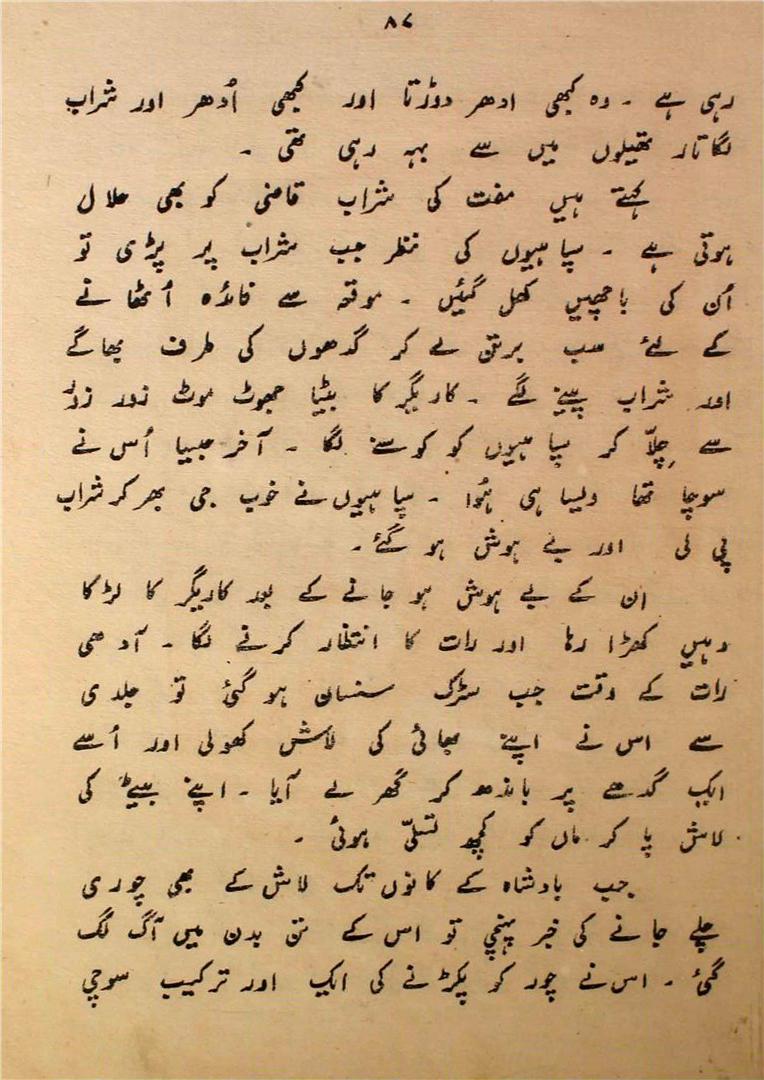 ۸۷
رہی ہے ۔ وہ کبھی ادھر دوڑتا اور کبھی اُدھر اور شراب
لگاتار تھیلوں میں سے بہہ رہی تھی ۔
کہتے ہیں مفت کی شراب قاضی کو بھی حلال
ہوتی ہے ۔ سپاہیوں کی نظر جب شراب پر پڑی تو
اُن کی باچھیں کھل گئیں ۔ موقعہ سے فائدہ اُٹھانے
کے لئے سب برتن لے کر گدھوں کی طرف بھاگے
اور شراب پینے لگے ۔ کاریگر کا بیٹا جھوٹ موٹ زور زور
سے چِلّا کر سپاہیوں کو کوسنے لگا ۔ آخر جیسا اُس نے
سوچا تھا ویسا ہی ہُوا ۔ سپاہیوں نے خوب جی بھر کر شراب
پی لی اور بے ہوش ہو گئے ۔
ان کے بے ہوش ہو جانے کے بعد کاریگر کا لڑکا
وہیں کھڑا رہا اور رات کا انتظار کرنے لگا ۔ آدھی
رات کے وقت جب سڑک سنسان ہو گئی تو جلدی
سے اس نے اپنے بھائی کی لاش کھولی اور اُسے
ایک گدھے پر باندھ کر گھر لے آیا ۔ اپنے بیٹے کی
لاش پا کر ماں کو کچھ تسلّی ہوئی ۔
جب بادشاہ کے کانوں تک لاش کے بھی چوری
چلے جانے کی خبر پہنچی تو اس کے تن بدن میں آگ لگ
گئی ۔ اس نے چور کو پکڑنے کی ایک اور ترکیب سوچی